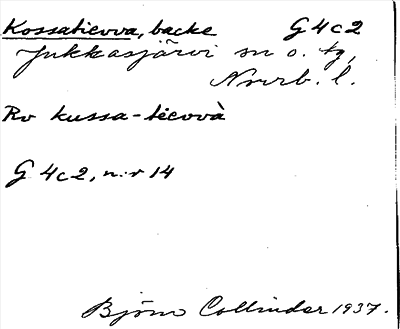 Kossatievva, backe G4c2
Jukkasjärvi sn o. tg,
Norrb. l.
Rv kussa-tievvà
G 4c2, n:r 14
Björn Collinder 1937.